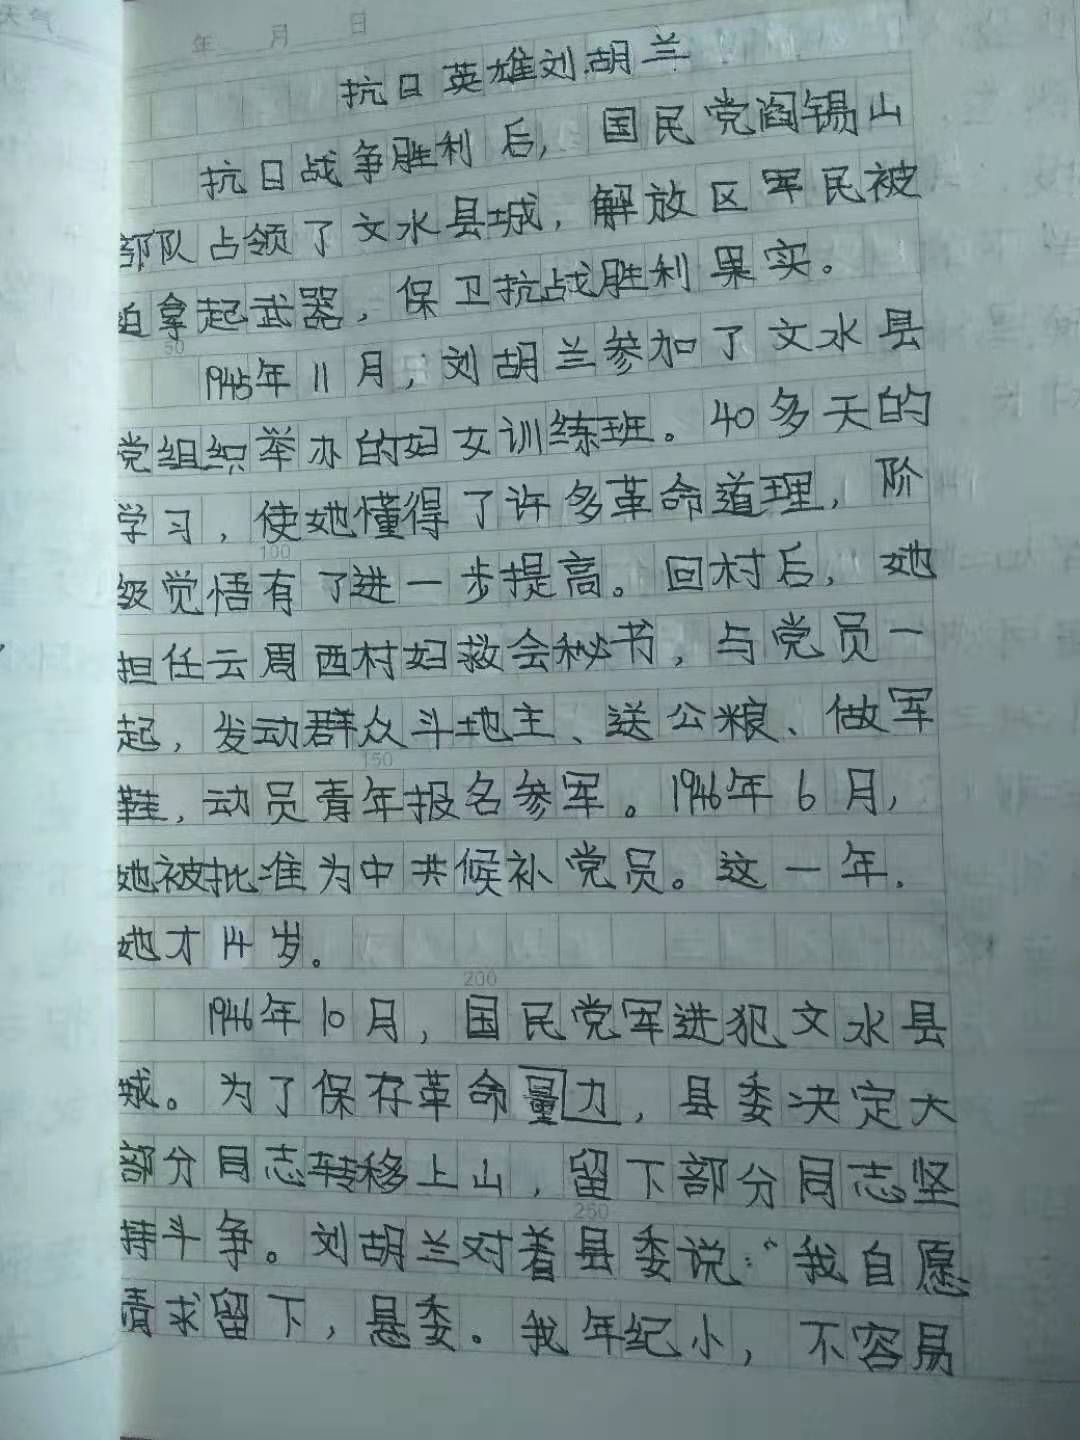 天气
年 月 日
抗日英雄刘胡兰
抗日战争胜利后，国民党阎锡山
部队占领了文水县城，解放区军民被
迫拿起武器，保卫抗战胜利果实。
50
1945年11月，刘胡兰参加了文水县
党组织举办的妇女训练班。40多天的
学习，使她懂得了许多革命道理，阶
100
级觉悟有了进一步提高。回村后，她
担任云周西村妇救会秘书，与党员一
起，发动群众斗地主、送公粮、做军
150
鞋，动员青年报名参军。1946年6月，
她被批准为中共候补党员。这一年，
她才14岁。
200
1946年10月，国民党军进犯文水县
城。为了保存革命量力，县委决定大
部分同志转移上山，留下部分同志坚
250
持斗争。刘胡兰对着县委说：“我自愿
请求留下，县委。我年纪小，不容易